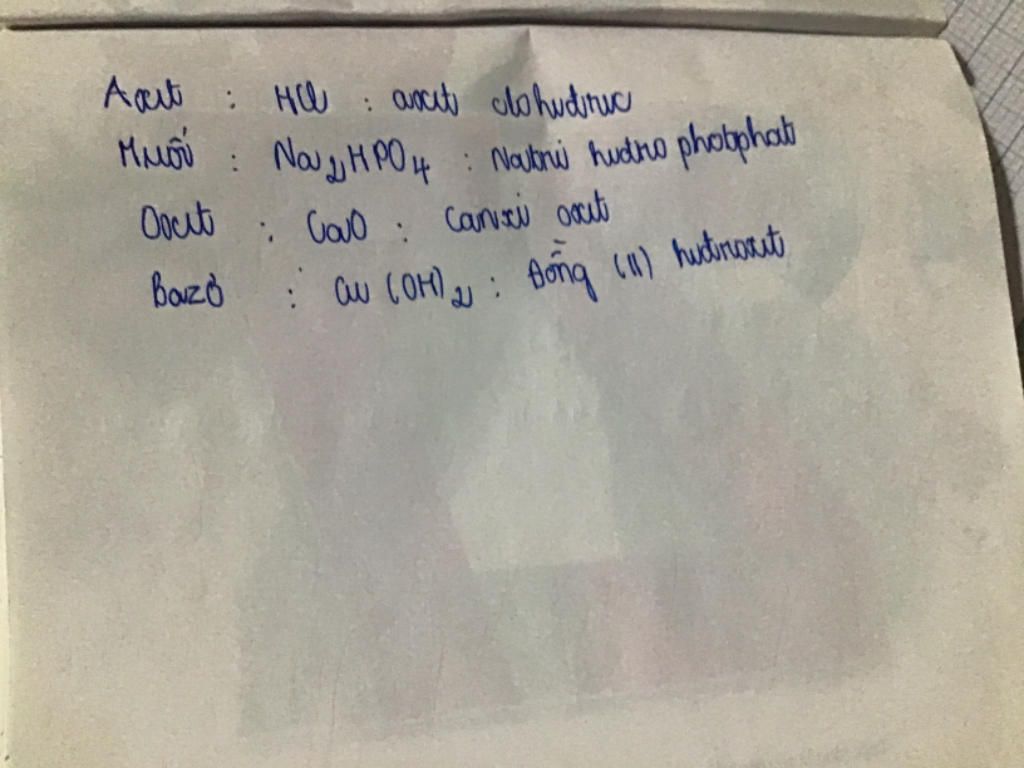 Axit : HCl : axit clohiđric
Muối : Na2HPO4 : Natri hiđro photphat
Oxit : CaO : Canxi oxit
Bazơ : Cu(OH)2 : Đồng (II) hiđroxit